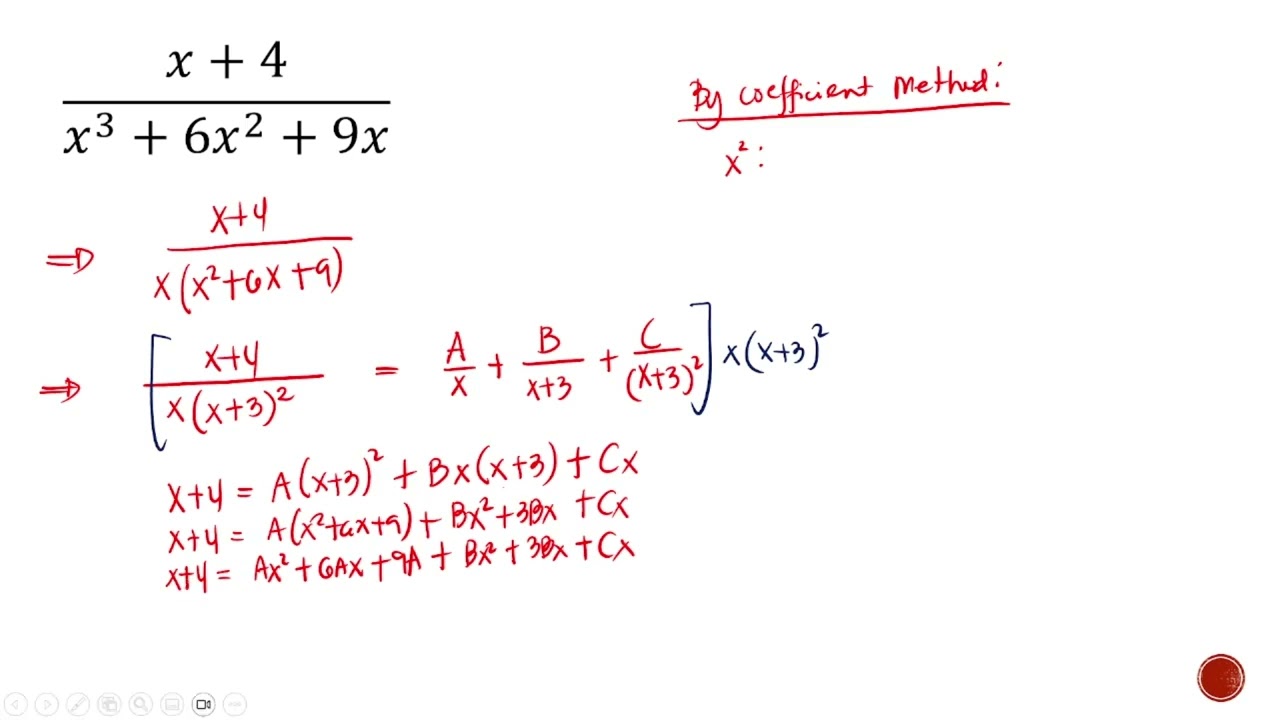 x + 4
x³ + 6x² + 9x
By coefficient Method:
x² :
⇒ x+4
x(x²+6x+9)
⇒ [ x+4 / x(x+3)² = A/x + B/x+3 + C/(x+3)² ] x(x+3)²
x+4 = A(x+3)² + Bx(x+3) + Cx
x+4 = A(x²+6x+9) + Bx²+3Bx + Cx
x+4 = Ax² + 6Ax + 9A + Bx² + 3Bx + Cx